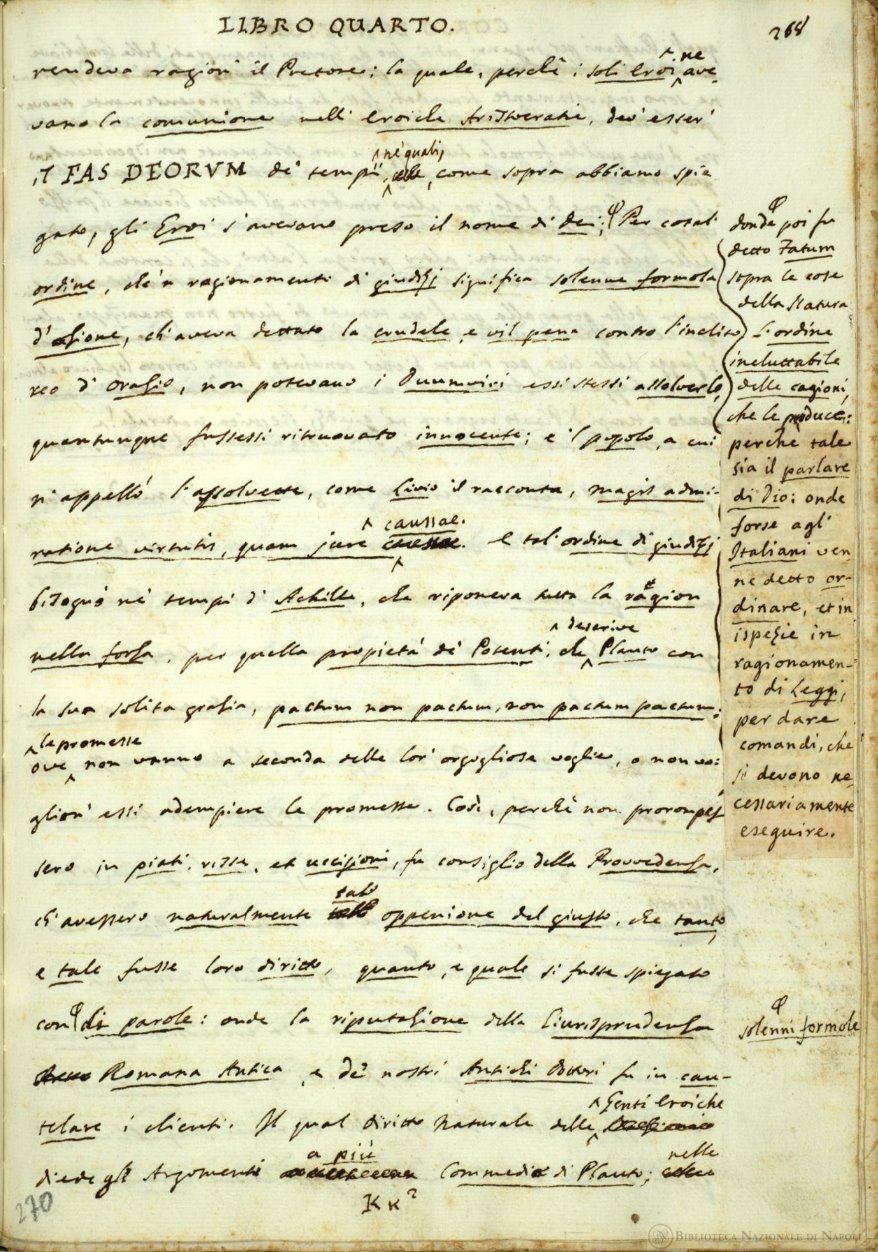 LIBRO QUARTO.
268
rendeva ragioni il Pretore; la quale, perchè i soli Eroi ne ave-
vano la comunione nell' Eroiche Aristocratie, dev' esser'
IL FAS DEORVM de' tempi, ne' quali, come sopra abbiamo spie
gato, gli Eroi s'avevano preso il nome di dei; Per cotal'
ordine, che 'n ragionamenti di giudizj significa solenne formola
d' azione, ch' aveva dettato la crudele, e vil pena contro l'inclito
reo d' Orazio, non potevano i Duumviri essi stessi assolverlo,
quantunque fussesi ritruovato innocente; e 'l popolo, a cui
n' appellò l'assolvette, come Livio il racconta, magis admi-
ratione virtutis, quam jure caussae. E tal' ordine di giudizj
bisognò ne' tempi d' Achille, che riponeva tutta la ragion
nella forza, per quella propietà de' Potenti, che descrive Plauto con
la sua solita grazia, pactum non pactum, non pactum pactum;
ove le promesse non vanno a seconda delle lor' orgogliose voglie, o non vo-
glion' essi adempiere le promesse. Così, perchè non prorompes
sero in piati, risse, et uccisioni, fu consiglio della Provvedenza,
ch' avessero naturalmente tal' oppenione del giusto, che tanto,
e tale fusse loro diritto, quanto, e quale si fusse spiegato
con di parole: onde la riputazione della Giurisprudenza
Romana Antica, e de' nostri Antichi Dottori fu in cau-
telare i clienti. Il qual diritto Naturale delle Genti Eroiche
diede gli Argomenti a più Commedie di Plauto; nelle
Kk2
270
donde poi fu
detto Fatum
sopra le cose
della Natura
l'ordine
ineluttabile
delle cagioni,
che le produce:
perchè tale
sia il parlare
di Dio: onde
forse agl'
Italiani ven
ne detto or-
dinare, et in
ispezie in
ragionamen-
to di Leggi,
per dare
comandi, che
si devono ne
cessariamente
eseguire.
solenni formole
BIBLIOTECA NAZIONALE DI NAPOLI